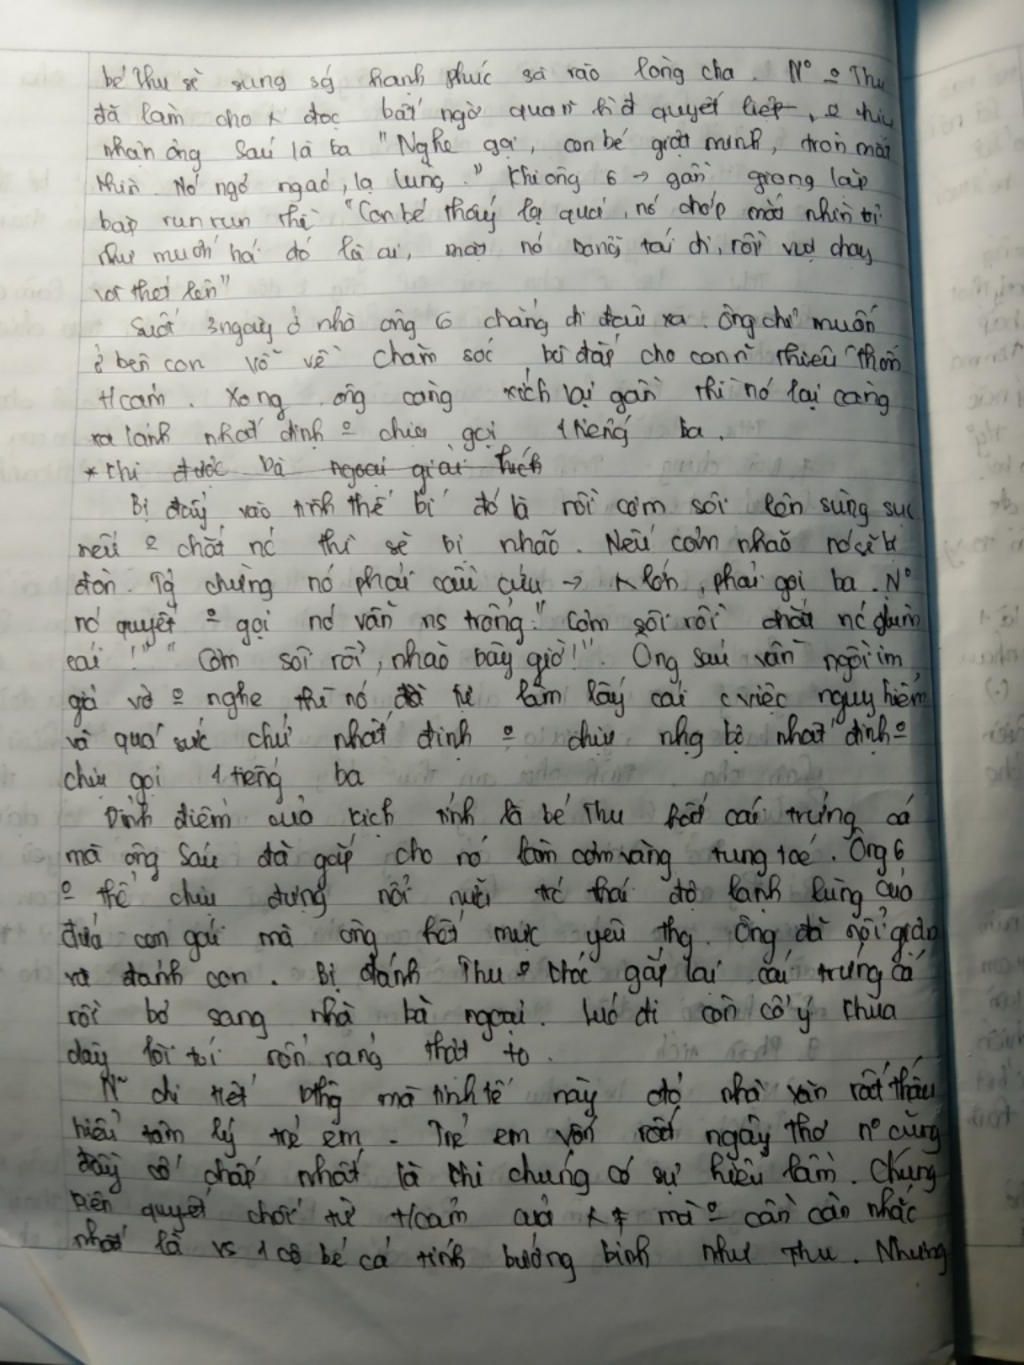 bé Thu sẽ sung sg hạnh phúc sà vào lòng cha. N° º Thu
đã làm cho x đọc bất ngờ quan hđ quyết liệt, º chịu
nhận ông Sáu là ba "Nghe gọi, con bé giật mình, tròn mắt
nhìn. Nó ngơ ngác, lạ lùng." Khi ông 6 → gần giọng lặp
bặp run run thì "Con bé thấy lạ quá, nó chớp mắt nhìn tôi
như muốn hỏi đó là ai, mặt nó bỗng tái đi, rồi vụt chạy
và thét lên"
Suốt 3 ngày ở nhà ông 6 chẳng đi đâu xa. Ông chỉ muốn
ở bên con vỗ về chăm sóc bù đắp cho con n~ thiếu thốn
t/cảm. Xong ông càng xích lại gần thì nó lại càng
xa lánh nhất định º chịu gọi 1 tiếng ba.
* Khi được bà ngoại giải thích
Bị đẩy vào tình thế bí đó là nồi cơm sôi lên sùng sục
nếu º chắt nc thì sẽ bị nhão. Nếu cơm nhão nó sẽ bị
đòn. Tg chừng nó phải cầu cứu → x lớn, phải gọi ba. N°
nó quyết º gọi nó vẫn ns trổng: "Cơm sôi rồi chắt nc giùm
cái!" "Cơm sôi rồi, nhão bây giờ!". Ông sáu vẫn ngồi im
giả vờ º nghe thì nó đã tự làm lấy cái cviệc nguy hiểm
và quá sức chứ nhất định º chịu nhg bộ nhất định º
chịu gọi 1 tiếng ba
Đỉnh điểm của kịch tính là bé Thu hất cái trứng cá
mà ông Sáu đã gắp cho nó làm cơm văng tung toé. Ông 6
º thể chịu đựng nổi nữa trc thái độ lạnh lùng của
đứa con gái mà ông hết mực yêu thg. Ông đã nổi giận
và đánh con. Bị đánh Thu º khóc gắp lại cái trứng cá
rồi bỏ sang nhà bà ngoại. Lúc đi còn cố ý khua
dây lòi tói rổn rảng thật to.
N~ chi tiết bthg mà tinh tế này đó nhà văn rất thấu
hiểu tâm lý trẻ em. Trẻ em vốn rất ngây thơ n° cũng
đầy cố chấp nhất là khi chúng có sự hiểu lầm. Chúng
kiên quyết chối từ t/cảm của x ≠ mà º cần cân nhắc
nhất là vs 1 cô bé cá tính bướng bỉnh như Thu. Nhưng